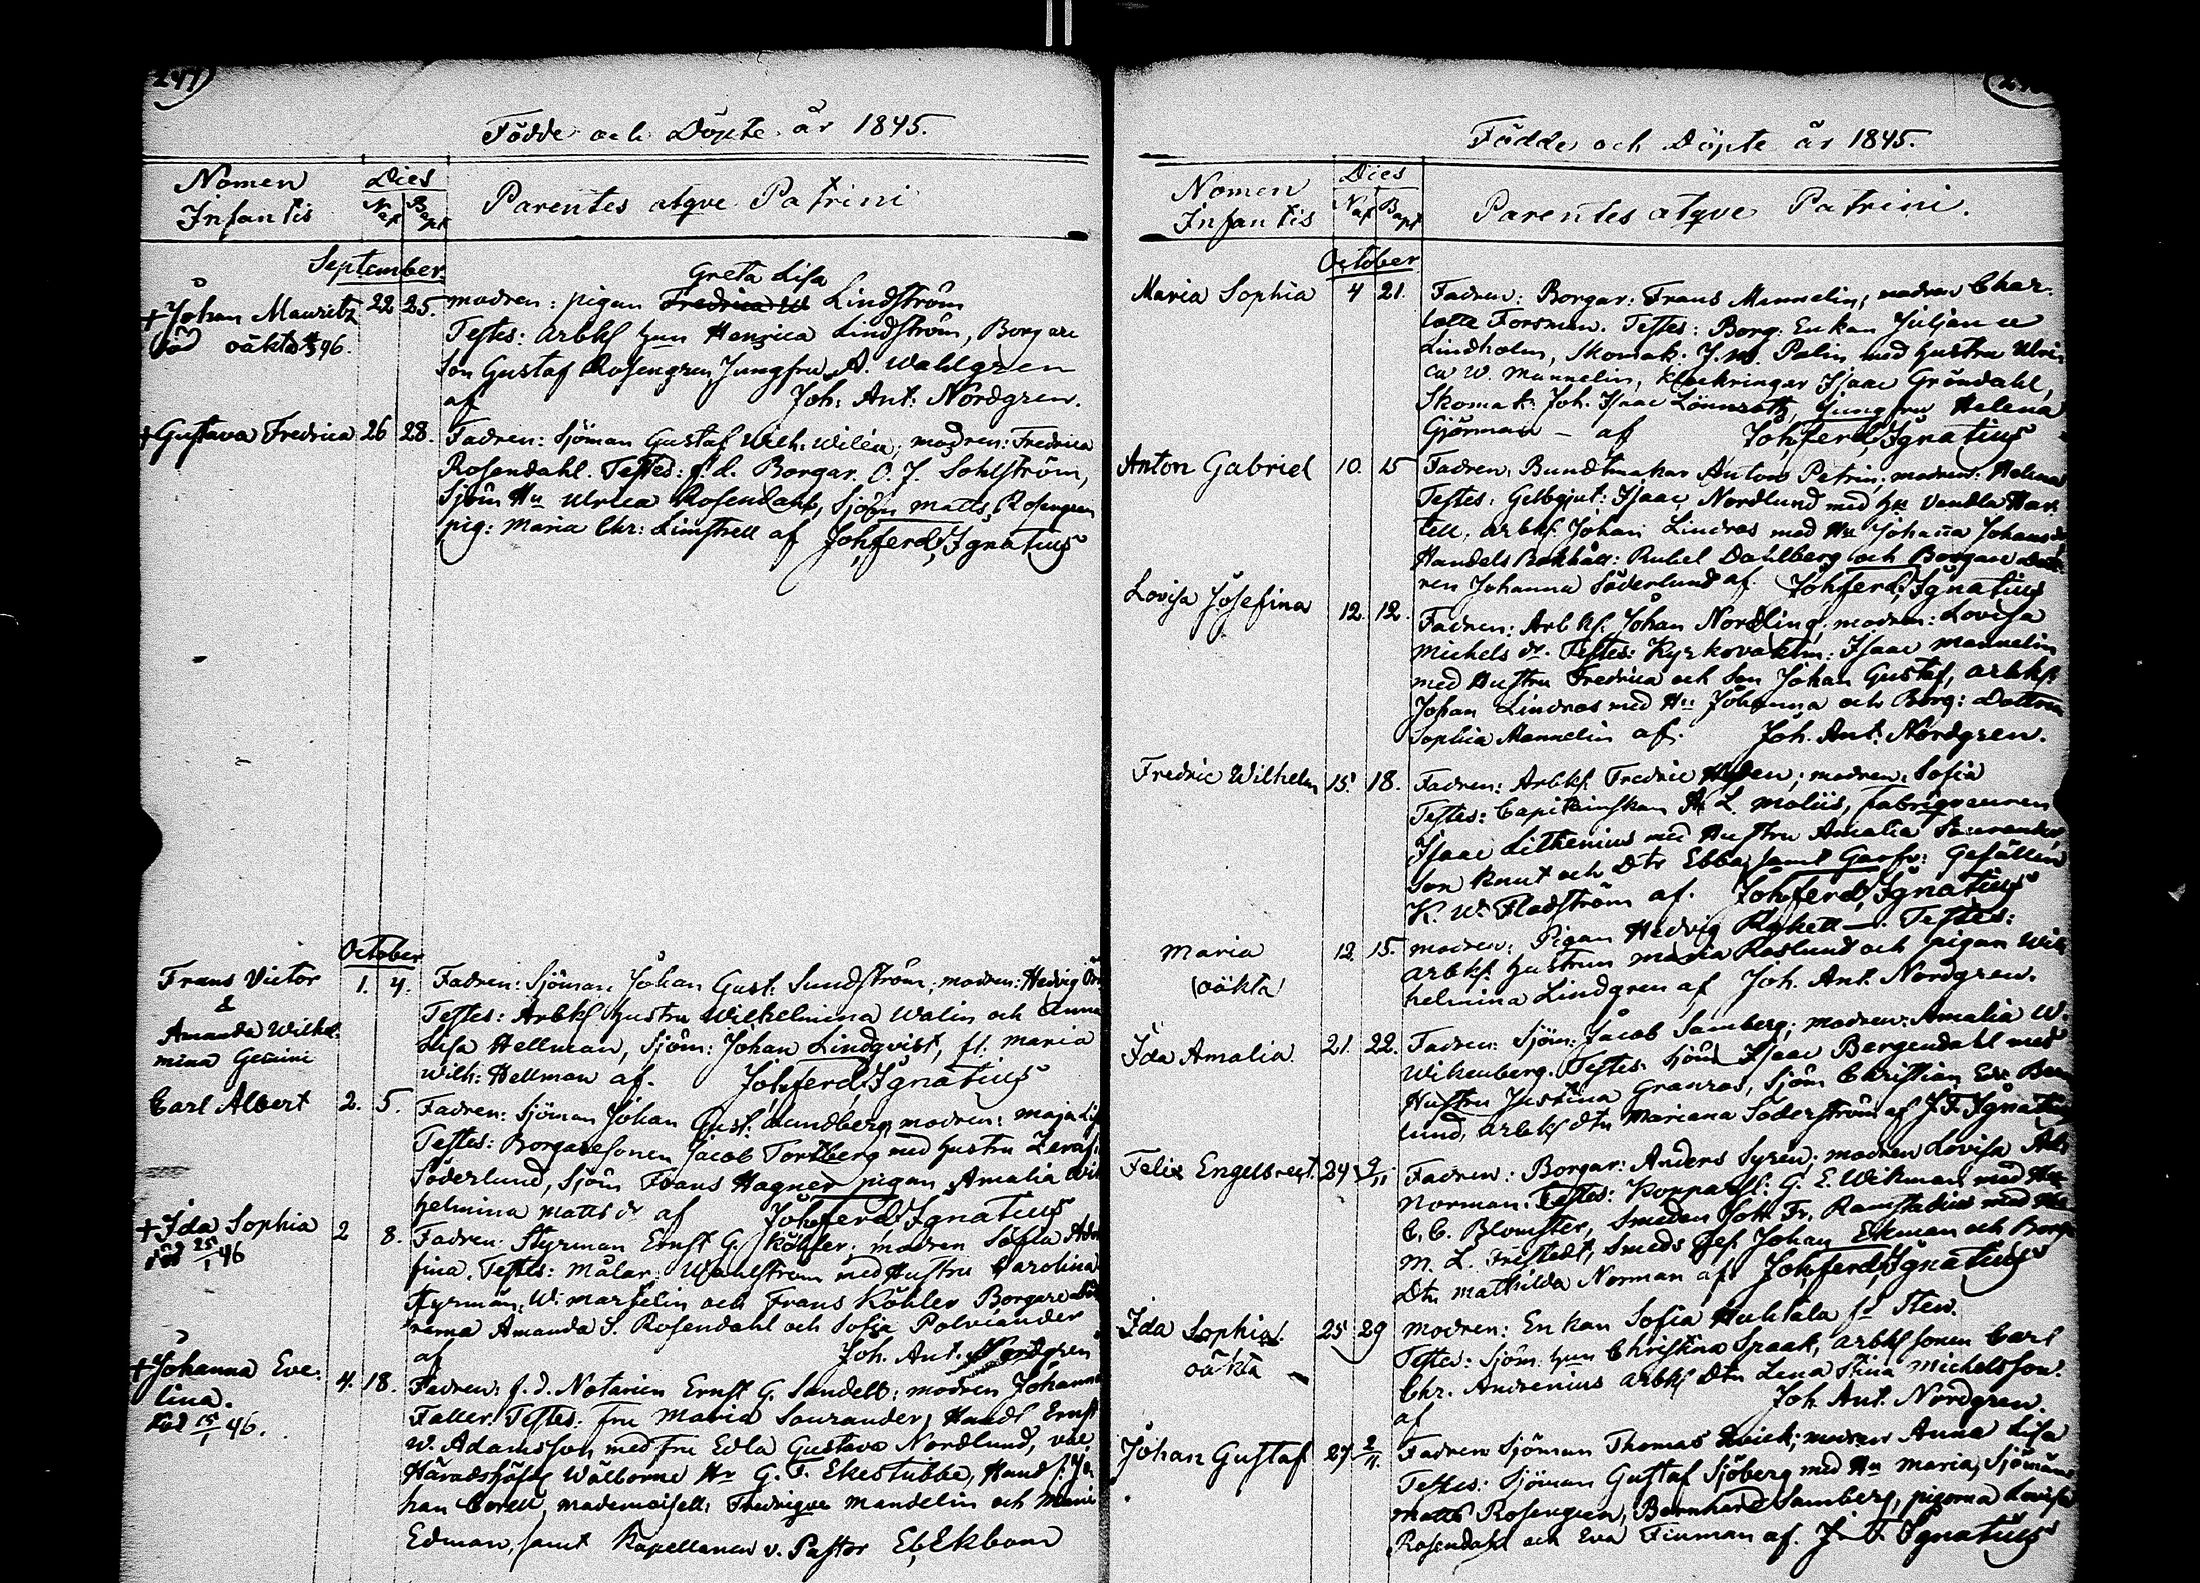 247
Födde och Döpte år 1845.
Nomen Infantis
Dies
Nat Bapt
Parentes atqve Patrini
September
Johan Mauritz
oäkta
22 25. modren: pigan Greta Lisa Lindström
Testes: Arbkſ hun Henrica Lindström, Borgare
Son Gustaf Rosengren, Jungfru A. Wahlgren
af Joh: Ant: Nordgren.
+ Gustava Fredrica 26 28. Fadren: Sjöman Gustaf Wilh. Wilén; modren: Fredrica
Rosendahl. Testes: f.d. Borgar. C. J. Sohlström,
Sjöm Hu Ulrica Rosendahl, Sjöm Matts Rosengren
pig: Maria Chr: Limstrell af Joh ferd, Ignatius
October
Frans Victor
&
Amanda Wilhel-
mina Gemini
1. 4. Fadren: Sjöman Johan Gust. Sundström; modren: Hedvig
Testes: Arbkſ hustru Wilhelmina Walin och Anna
Lisa Hellman, Sjöm: Johan Lindqvist, fl. Maria
Wilh: Hellman af. Joh ferd, Ignatius
Carl Albert 2. 5. Fadren: Sjöman Johan Gust. Lundberg, modren: Maja
Testes: Borgaresonen Jacob Forsberg med hustru
Söderlund, Sjöm Frans Hagner pigan Amalia Wil
helmina Matts dr af Joh ferd Ignatius
+ Ida Sophia
död 25/1 46
2 8. Fadren: Styrman Ernst G. Köhler; modren Sofia
fina. Testes: Målar: Wahlström med Hustru Carolina
Styrman W. Marselin och Frans Köhler Borgare
rarna Amanda S. Rosendahl och Sofia Polviander
af Joh. Ant. Nordgren
+ Johanna Eve-
lina.
död 15/1 46.
4. 18. Fadren: f. d. Notarien Ernst G. Sandell; modren Johanna
Faller. Testes: Fru Maria Saurander, Handl Ernst
W. Adamsson med fru Edla Gustava Nordlund,
Häradshöfd Wälborne Hr G. F. Ekestubbe, Handl. Jo
han Corell, mademoiselle Fredrique Mandelin och
Edman, samt Kapellanen v. Pastor Ekbom
Födde och Döpte år 1845.
Nomen Infantis
Dies
Nat Bapt
Parentes atqve Patrini.
October
Maria Sophia 4 21. Fadren: Borgar: Frans Mannelin; modren Char-
lotte Forsman. Testes: Borg: Enkan Juliana
Lindholm, Skomak. J. W. Palin med hustru Ulri-
ca W. Mannelin, klockringar Isaac Gröndahl,
Skomak: Joh. Isaac Lönnroth, Jungfru Helena
Gjörman - af Joh ferd, Ignatius
Anton Gabriel 10. 15 Fadren: Bundtmakar Anton Petrin; modren: Helena
Testes: Gelbgjut: Isaac Nordlund med Hu Vendla Har
tell, Arbkſ. Johan Lindros med Hu Johanna Johans dr
Handels Bokhåll: Rudel Dahlberg och Borgare
ren Johanna Söderlund af. Joh ferd, Ignatius
Lovisa Josefina 12. 12. Fadren: Arbkſ. Johan Nordling; modren: Lovisa
Michels dr. Testes: Kyrkovaktm: Isaac Mannelin
med Hustru Fredrica och Son Johan Gustaf, Arbkſ.
Johan Lindros med Hu Johanna och Borg: Dottren
Sophia Mannelin af. Joh. Ant: Nordgren.
Fredric Wilhelm 15. 18. Fadren: Arbkſ. Fredric Hyden; modren: Sofia
Testes: Capitainskan A. L. Moliis, Fabriqveuren
Isaac Lithenius med Hustru Amalia Saurander,
Son Knut och Dtr Ebba, samt Garfv: Gesällen
K. W. Fladström af. Joh ferd, Ignatius
Maria
(oäkta)
12. 15. modren: Pigan Hedvig Testes:
Arbkſ. hustrun Maria Roslund och pigan Wil-
helmina Lindgren af Joh. Ant. Nordgren.
Ida Amalia. 21. 22. Fadren: Sjöm: Jacob Samberg; modren: Amalia W.
Wikenberg. Testes: Sjöm Isaac Bergendahl med
Hustru Justina Granros, Sjöm Christian Edv.
lund, Arbkſ dtr Mariana Söderström af J. F. Ignatius
Felix Engelbrect. 24 9/11. Fadren: Borgar: Anders Syrén; modren Lovisa
Norman. Testes: Kopparsl: G. E. Wikman med
C. C. Blomster, Smeden Joh. Fr. Ramstadius med
M. L. Fristedt, Smeds Ges. Johan Ekman och Borg
Dtr Mathilda Norman af Joh ferd, Ignatius
Ida Sophia.
oäkta
25 29 Modren: Enkan Sofia Huhtala f. Sten.
Testes: Sjöm. hun Christina Spaak, Arbkſ sonen Carl
Chr. Andrenius Arbkſ Dtr Lena Stina Michelsson.
af Joh. Ant. Nordgren.
Johan Gustaf 27. 2/11. Fadren Sjöman Thomas Qvick; modren Anna Lisa
Testes: Sjöman Gustaf Sjöberg med Hu Maria, Sjömän
Matts Rosengren, Bernhard Samberg, pigorna Lovisa
Rosendahl och Eva Finman af. J. F. Ignatius